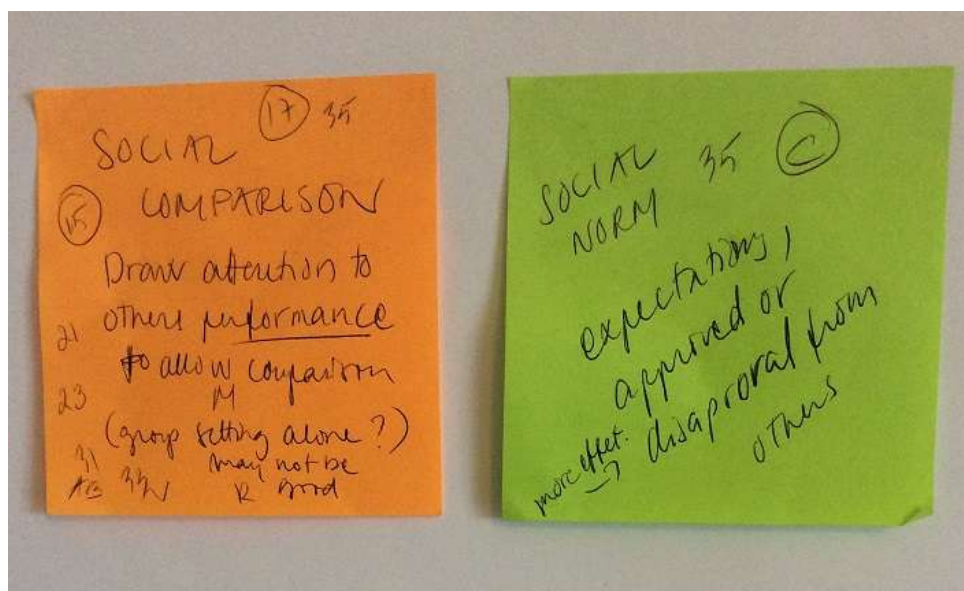 17 35
SOCIAL
15 COMPARISON
Draw attention to
21 others performance
to allow comparison
23 M
(group setting alone?)
31 may not be
33 R good
SOCIAL 35 C
NORM
expectations,
approved or
disaproval from
others
more effet.